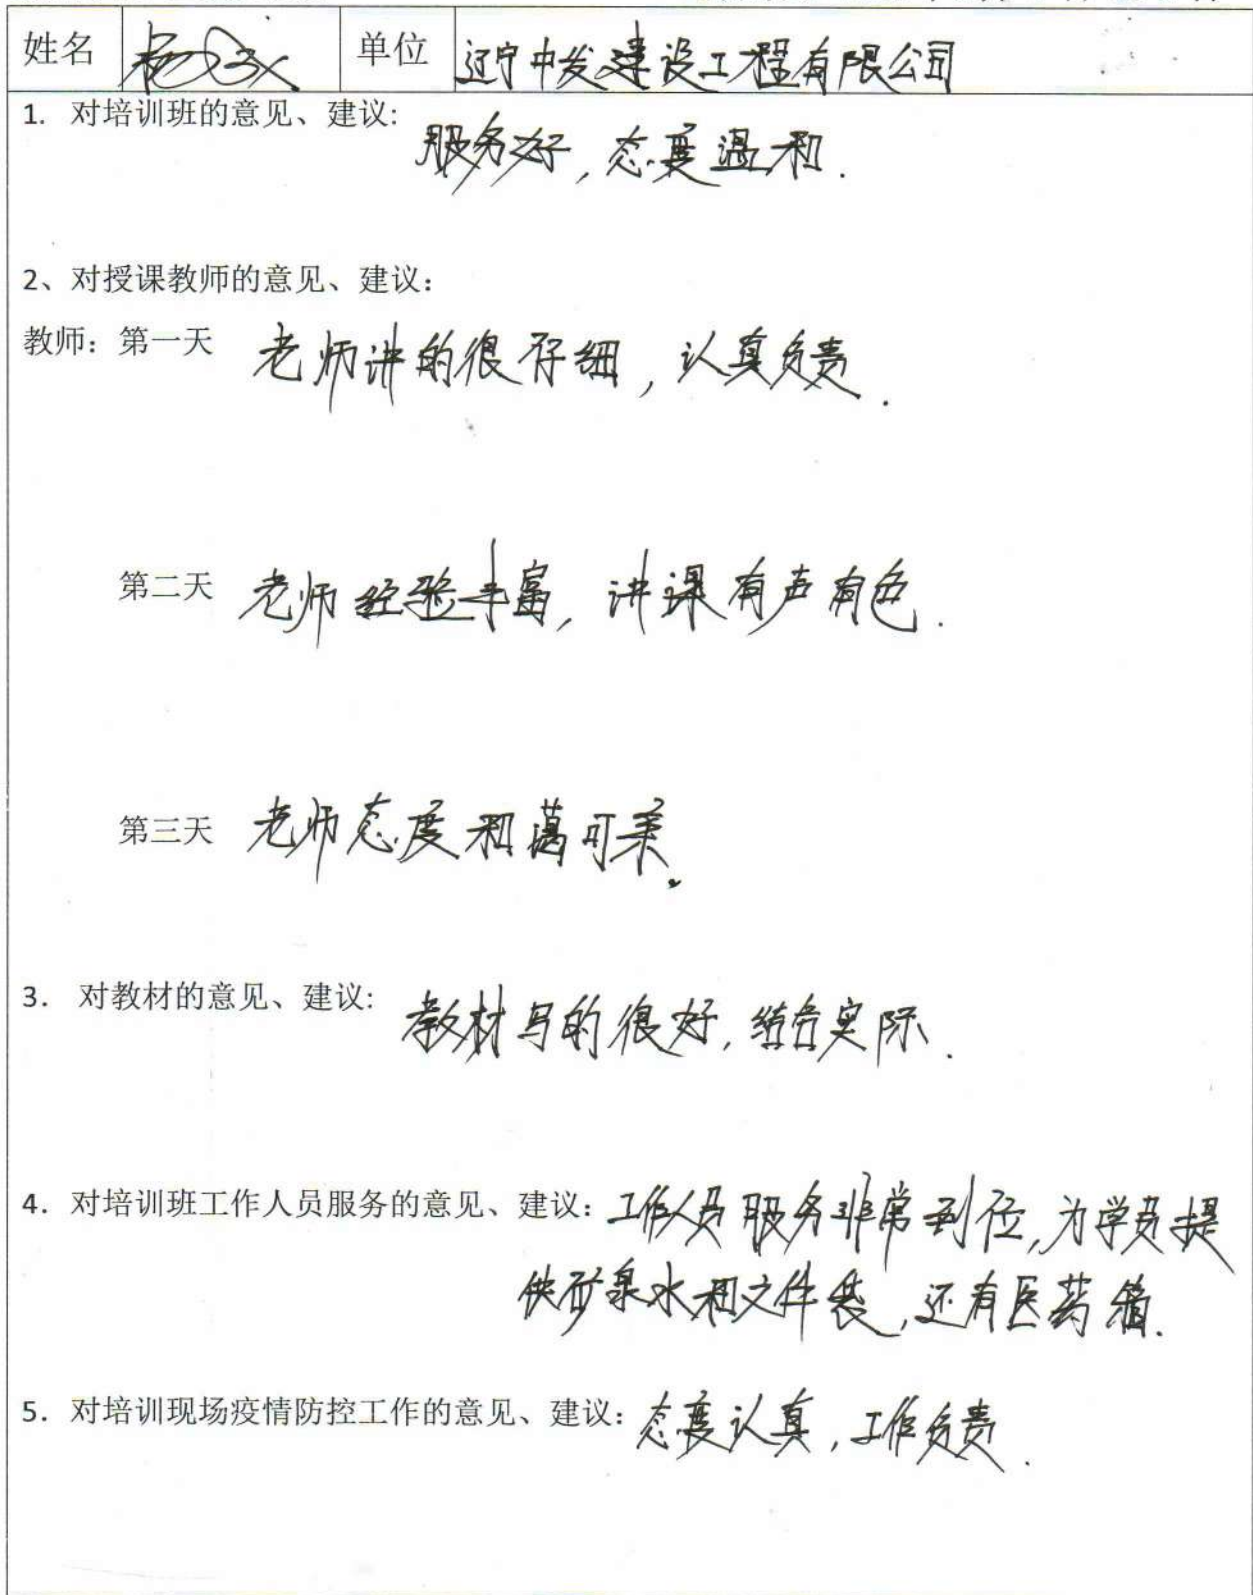 姓名 单位 辽宁中发建设工程有限公司
1. 对培训班的意见、建议: 服务好，态度温和.
2、对授课教师的意见、建议：
教师：第一天 老师讲的很仔细，认真负责.
第二天 老师经验丰富，讲课有声有色.
第三天 老师态度和蔼可亲。
3. 对教材的意见、建议: 教材写的很好，结合实际.
4. 对培训班工作人员服务的意见、建议：工作人员服务非常到位，为学员提
供矿泉水和文件袋，还有医药箱.
5. 对培训现场疫情防控工作的意见、建议：态度认真，工作负责.